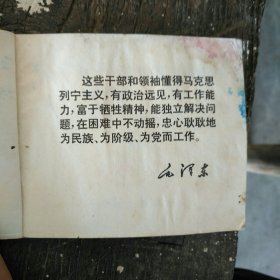 这些干部和领袖懂得马克思
列宁主义，有政治远见，有工作能
力，富于牺牲精神，能独立解决问
题，在困难中不动摇，忠心耿耿地
为民族、为阶级、为党而工作。
毛泽东